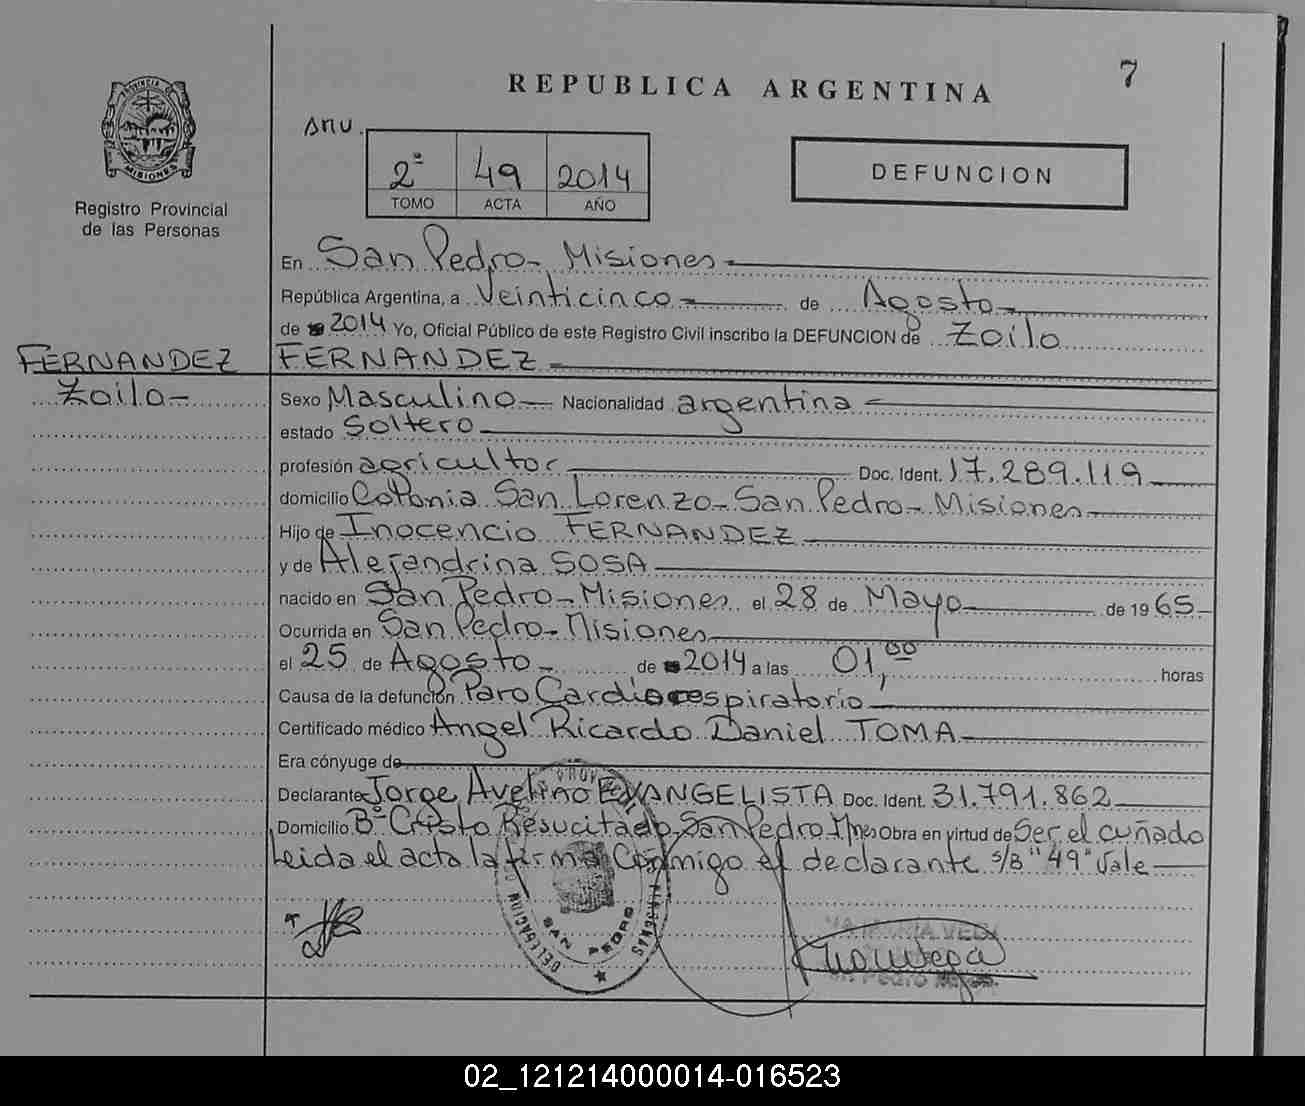 7
REPUBLICA ARGENTINA
PROVINCIA DE MISIONES
Registro Provincial
de las Personas
2º 49 2014
TOMO ACTA AÑO
DEFUNCION
En San Pedro - Misiones
República Argentina, a Veinticinco de Agosto
de 2014 Yo, Oficial Público de este Registro Civil inscribo la DEFUNCION de Zoilo
FERNANDEZ FERNANDEZ
Zoilo - Sexo Masculino Nacionalidad argentina
estado Soltero
profesión agricultor Doc. Ident. 17.289.119
domicilio Colonia San Lorenzo - San Pedro - Misiones
Hijo de Inocencio FERNANDEZ
y de Alejandrina SOSA
nacido en San Pedro - Misiones el 28 de Mayo de 1965
Ocurrida en San Pedro - Misiones
el 25 de Agosto de 2014 a las 01,00 horas
Causa de la defunción Paro Cardiorespiratorio
Certificado médico Angel Ricardo Daniel TOMA
Era cónyuge de
Declarante Jorge Avelino EVANGELISTA Doc. Ident. 31.791.862
Domicilio Bº Cristo Resucitado, San Pedro Mnes Obra en virtud de Ser el cuñado
Leida el acta la firma Conmigo el declarante s/B "49" Vale
DELEGACION SAN PEDRO
02_121214000014-016523